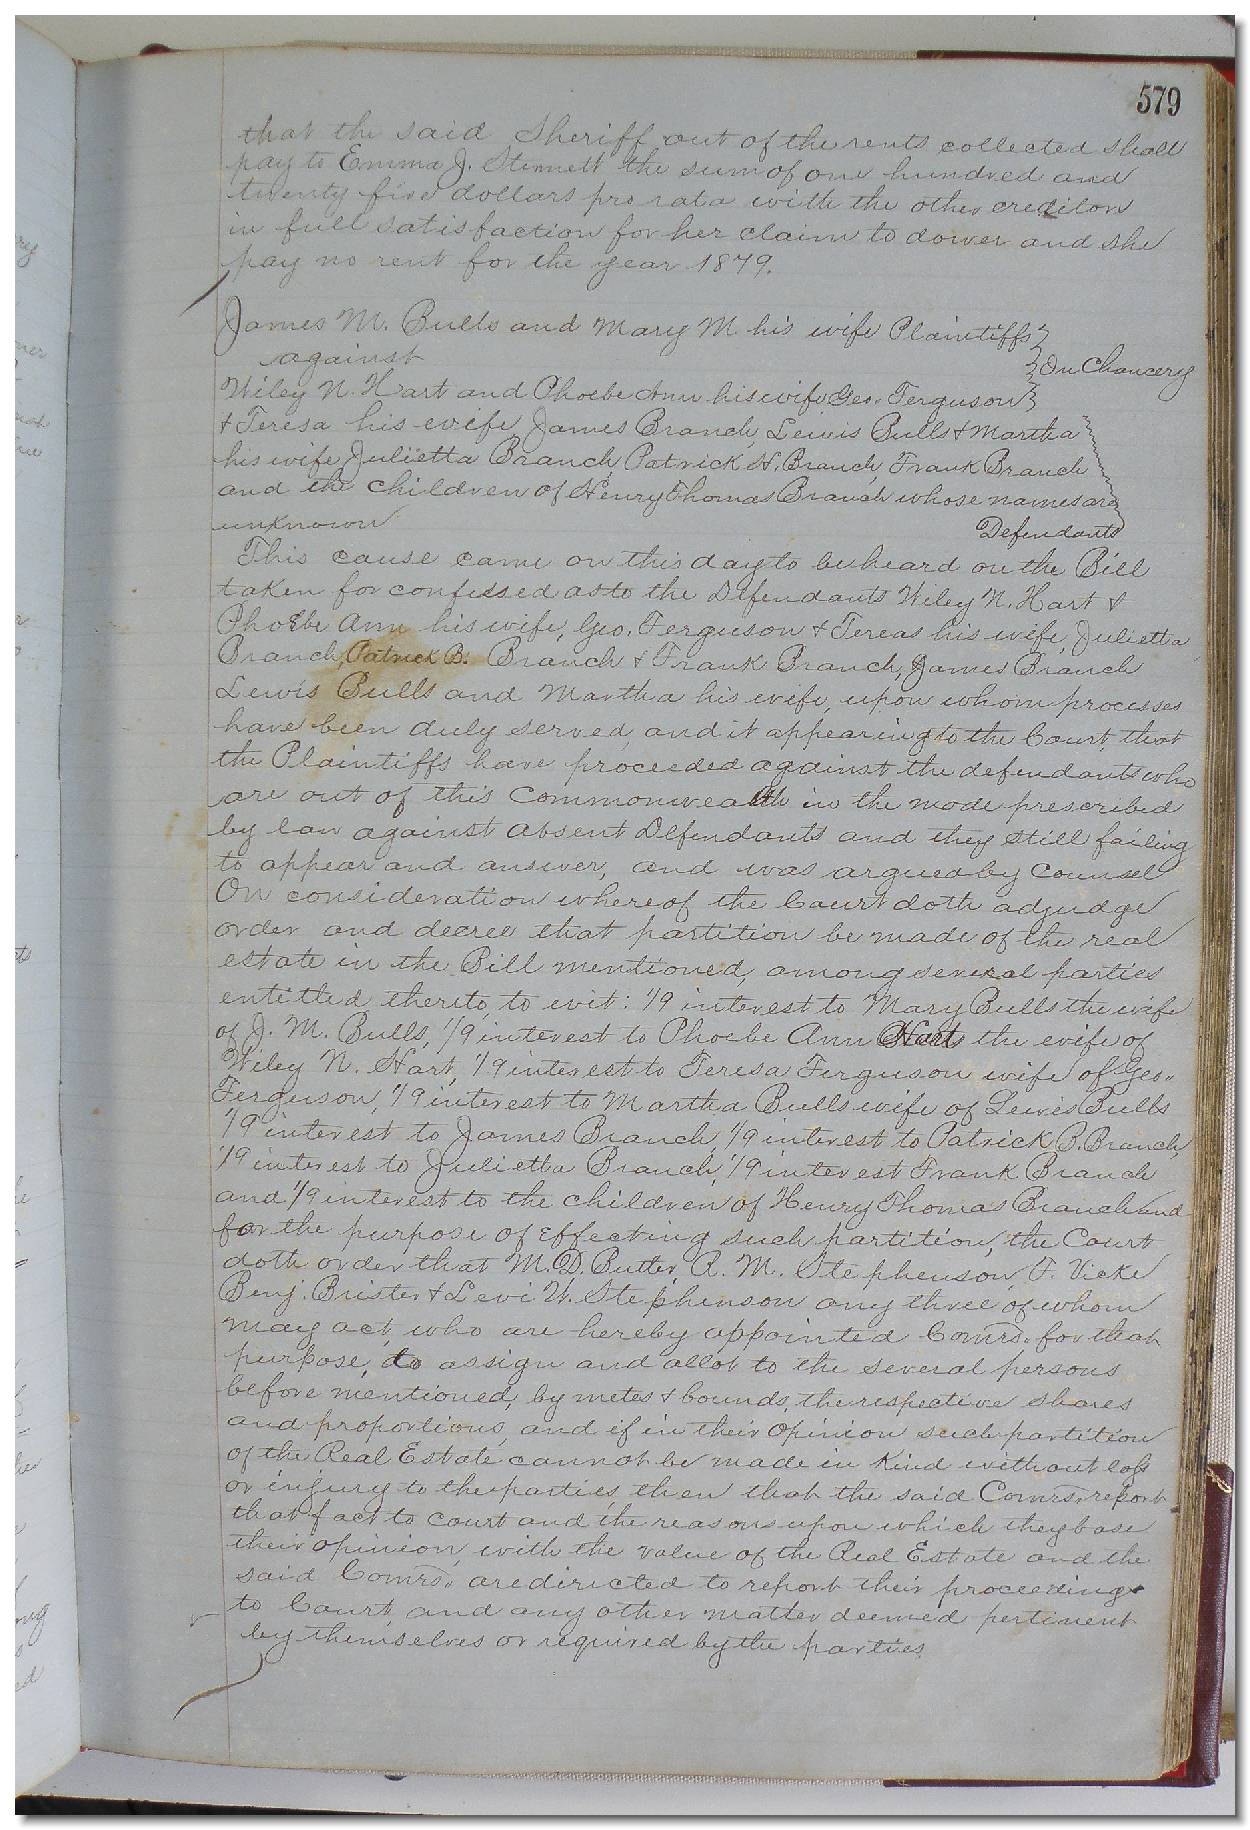 579
that the said Sheriff out of the rents collected shall
pay to Emma J. Stinnett the sum of one hundred and
twenty five dollars pro rata with the other creditors
in full satisfaction for her claim to dower and she
pay no rent for the year 1879.
James M. Bulls and Mary M his wife Plaintiffs
against
In Chancery
Wiley N. Hart and Phoebe Ann his wife, Geo. Ferguson
& Teresa his wife James Branch, Lewis Bulls & Martha
his wife, Julietta Branch, Patrick H. Branch, Frank Branch
and the children of Henry Thomas Branch whose names are
unknown
Defendants
This cause came on this day to be heard on the Bill
taken for confessed as to the Defendants Wiley N. Hart &
Phoebe Ann his wife, Geo. Ferguson & Tereas his wife, Julietta
Branch, Patrick B. Branch & Frank Branch, James Branch
Lewis Bulls and Martha his wife, upon whom processes
have been duly served, and it appearing to the Court, that
the Plaintiffs have proceeded against the defendants who
are out of this Commonwealth in the mode prescribed
by law against absent Defendants and they still failing
to appear and answer, and was argued by Counsel
On consideration whereof the Court doth adjudge
order and decree that partition be made of the real
estate in the Bill mentioned, among several parties
entitled thereto, to wit: 1/9 interest to Mary Bulls the wife
of J. M. Bulls, 1/9 interest to Phoebe Ann Hart the wife of
Wiley N. Hart, 1/9 interest to Teresa Ferguson wife of Geo.
Ferguson, 1/9 interest to Martha Bulls wife of Lewis Bulls
1/9 interest to James Branch, 1/9 interest to Patrick B. Branch,
1/9 interest to Julietta Branch, 1/9 interest Frank Branch
and 1/9 interest to the children of Henry Thomas Branch and
for the purpose of effecting such partition, the Court
doth order that M. D. Butler, R. M. Stephenson, F. Vicke
Benj. Brister & Levi W. Stephenson any three of whom
may act, who are hereby appointed Comrs. for that
purpose, do assign and allot to the several persons
before mentioned, by metes & bounds, the respective shares
and proportions, and if in their opinion such partition
of the Real Estate cannot be made in Kind without loss
or injury to the parties, then that the said Comrs. report
that fact to court and the reasons upon which they base
their opinion, with the value of the Real Estate and the
said Comrs. are directed to report their proceedings
to Court and any other matter deemed pertinent
by themselves or required by the parties.